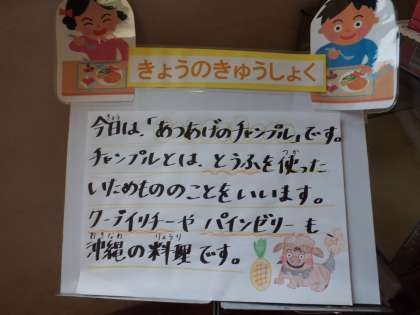 きょうのきゅうしょく
今日は、「あつあげのチャンプル」です。
チャンプルとは、とうふを使った
いりためもののことをいいます。
クーブイリチーや パインゼリーも、
沖縄の料理です。